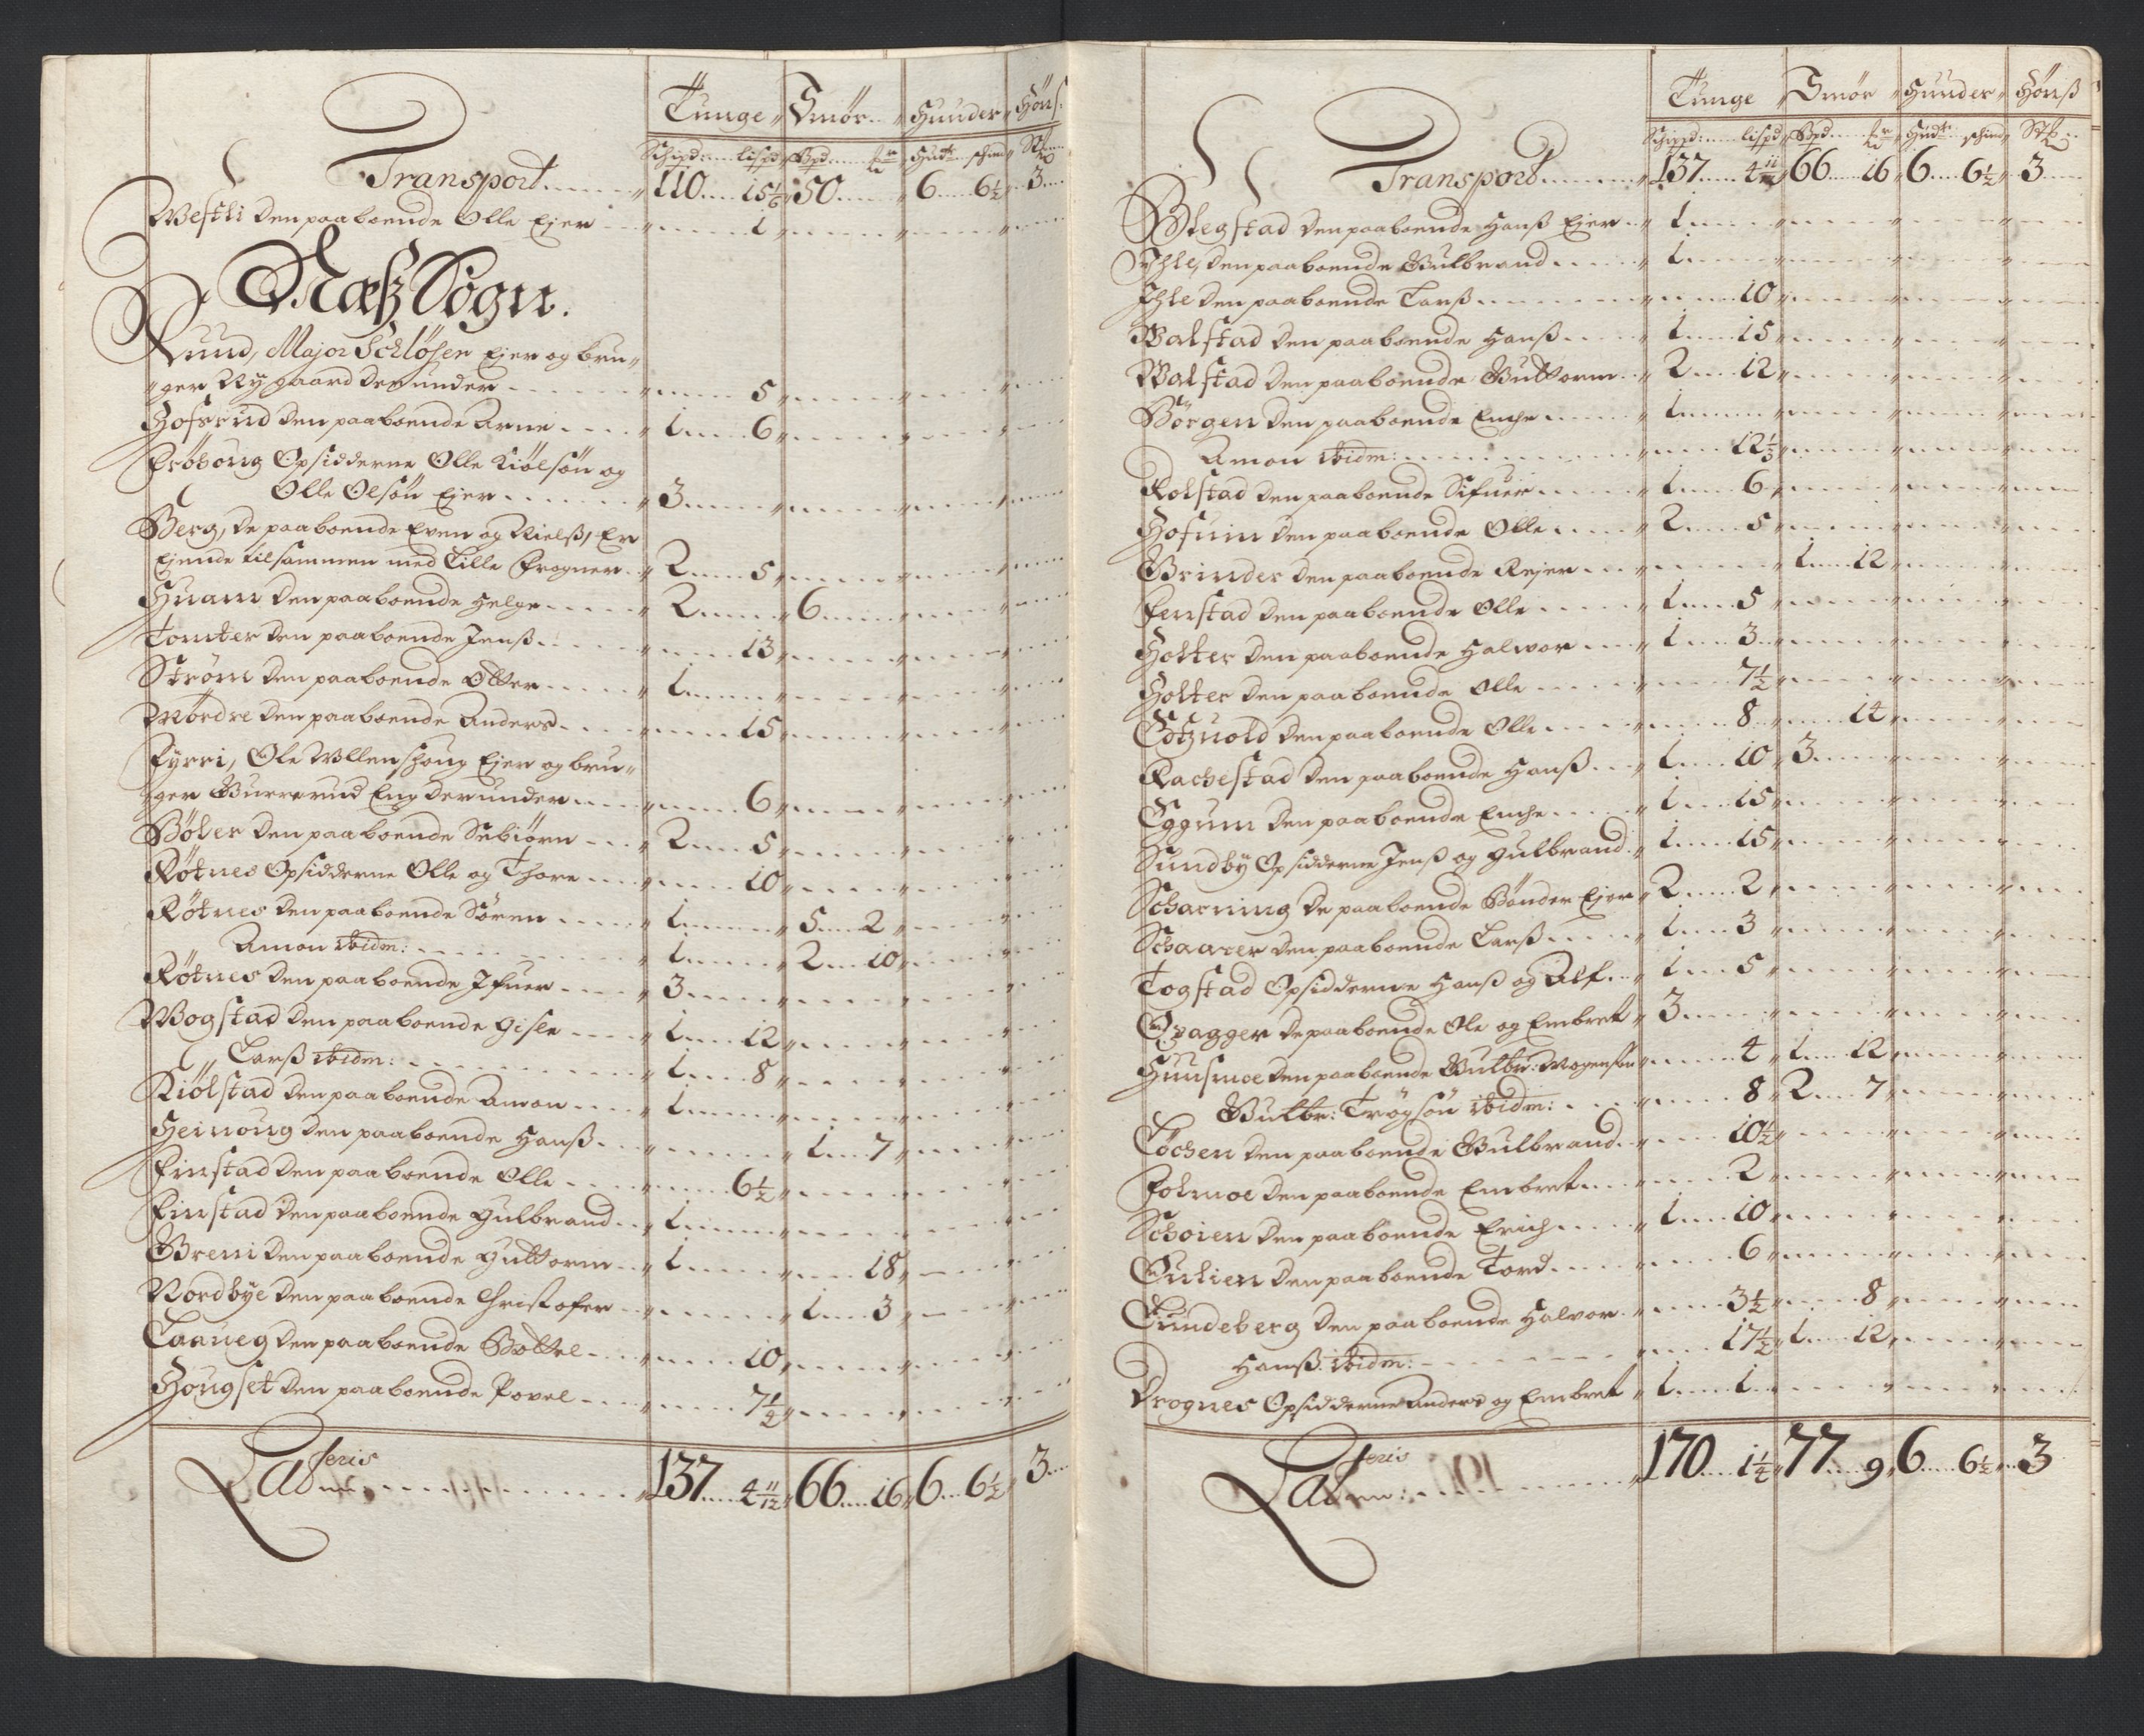 Tunge Smör Hunder Höns:
Schipd: lispd Bpd. Hudr schind Stk
Transport 110 15 1/6 50 6 6 1/2 3
Westli den paaboende Olle Ejer 1
Næs Sogn.
Ruud, Major Schlösen Ejer og bru„
„ger Nygaard derunder 5
Hofsrud den paaboende Arne 1 6
Fröboug Opsidderne Olle Kiölsön og
Olle Olsön Ejer 3
Berg, de paaboende Even og Nielss, Er
Ejende tilsammen med Lille Frogner 2 5
Huam den paaboende Helge 2 6
Tomter den paaboende Jenss 13
Ström den paaboende Otter 1
Mördre den paaboende Anders 15
Fyrri, Ole Wllenschoug Ejer og bru„
„ger Burrerud Eng derunder 6
Böler den paaboende Sebiörn 2 5
Rötnes Opsidderne Olle og Thore 10
Rötnes den paaboende Sören 1 5 2
Amon ibidm: 1 2 10
Rötnes den paaboende Ifuer 3
Wogstad den paaboende Gisle 1 12
Larss ibidm: 1 8
Kiölstad den paaboende Amon 1
Heinoug den paaboende Hanss 1 7
Finstad den paaboende Olle 6 1/2
Finstad den paaboende Gulbrand 1
Breni den paaboende Guttorm 1 18
Nordbye den paaboende Christofer 1 3
Laaueg den paaboende Bottel 10
Hougset den paaboende Povel 7 1/4
Lateris 137 4 11/12 66 16 6 6 1/2 3
Tunge Smör Hunder Hönss
Schippd: lispd Bpd. Hudr schind Stk
Transport 137 4 11/12 66 16 6 6 1/2 3
Blegstad den paaboende Hanss Ejer 1
Ihle, den paaboende Gulbrand 1
Ihle den paaboende Larss 10
Walstad den paaboende Hanss 1 15
Walstad den paaboende Guttorm 2 12
Börgen den paaboende Enche 1
Amon ibidm: 12 1/3
Rolstad den paaboende Sifuer 1 6
Hofum den paaboende Olle 2 5
Brinder den paaboende Rejer 1 12
Fenstad den paaboende Olle 1 5
Holter den paaboende Halvor 1 3
Holter den paaboende Olle 7 1/2
Edtzuold den paaboende Olle 8 14
Rachestad den paaboende Hanss 1 10 3
Eggum den paaboende Enche 1 15
Sundby Opsidderne Jenss og Gulbrand 1 15
Scharning de paaboende Bönder Ejer 2 2
Schaarer den paaboende Larss 1 3
Togstad Opsidderne Hanss og Alf 1 5
Opagger de paaboende Ole og Embret 3
Huusmoe den paaboende Gulbr: Mogensön 4 1 12
Gulbr: Trögsön ibidm: 8 2 7
Löchen den paaboende Gulbrand 10 1/2
Folmoe den paaboende Embret 2
Schoien den paaboende Erich 1 10
Eulien den paaboende Tord 6
Lindeberg den paaboende Halvor 3 1/2 8
Hanss ibidm: 17 1/2 1 12
Drognes Opsidderne Anders og Embret 1 1
Lateris 170 1 1/4 77 9 6 6 1/2 3